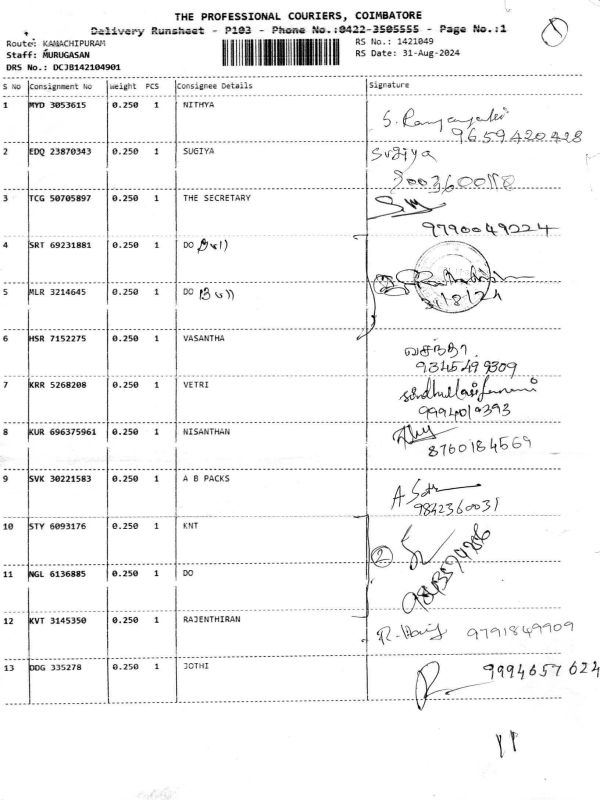 THE PROFESSIONAL COURIERS, COIMBATORE
Delivery Runsheet - P103 - Phone No.:0422-3505555 - Page No.:1
1
Route: KANACHIPURAM
RS No.: 1421049
Staff: MURUGASAN
RS Date: 31-Aug-2024
DRS No.: DCJB142104901
S No Consignment No Weight PCS Consignee Details Signature
1 MYD 3053615 0.250 1 NITHYA
9659420428
2 EDQ 23870343 0.250 1 SUGIYA Sugiya
3 TCG 50705897 0.250 1 THE SECRETARY
9790049224
4 SRT 69231881 0.250 1 DO
5 MLR 3214645 0.250 1 DO
31/8/24
6 HSR 7152275 0.250 1 VASANTHA
வசந்தா
7 KRR 5268208 0.250 1 VETRI
8 KUR 696375961 0.250 1 NISANTHAN
8760184569
9 SVK 30221583 0.250 1 A B PACKS
9842360031
10 STY 6093176 0.250 1 KNT
2
11 NGL 6136885 0.250 1 DO
12 KVT 3145350 0.250 1 RAJENTHIRAN
9791849909
13 DDG 335278 0.250 1 JOTHI
9994657624